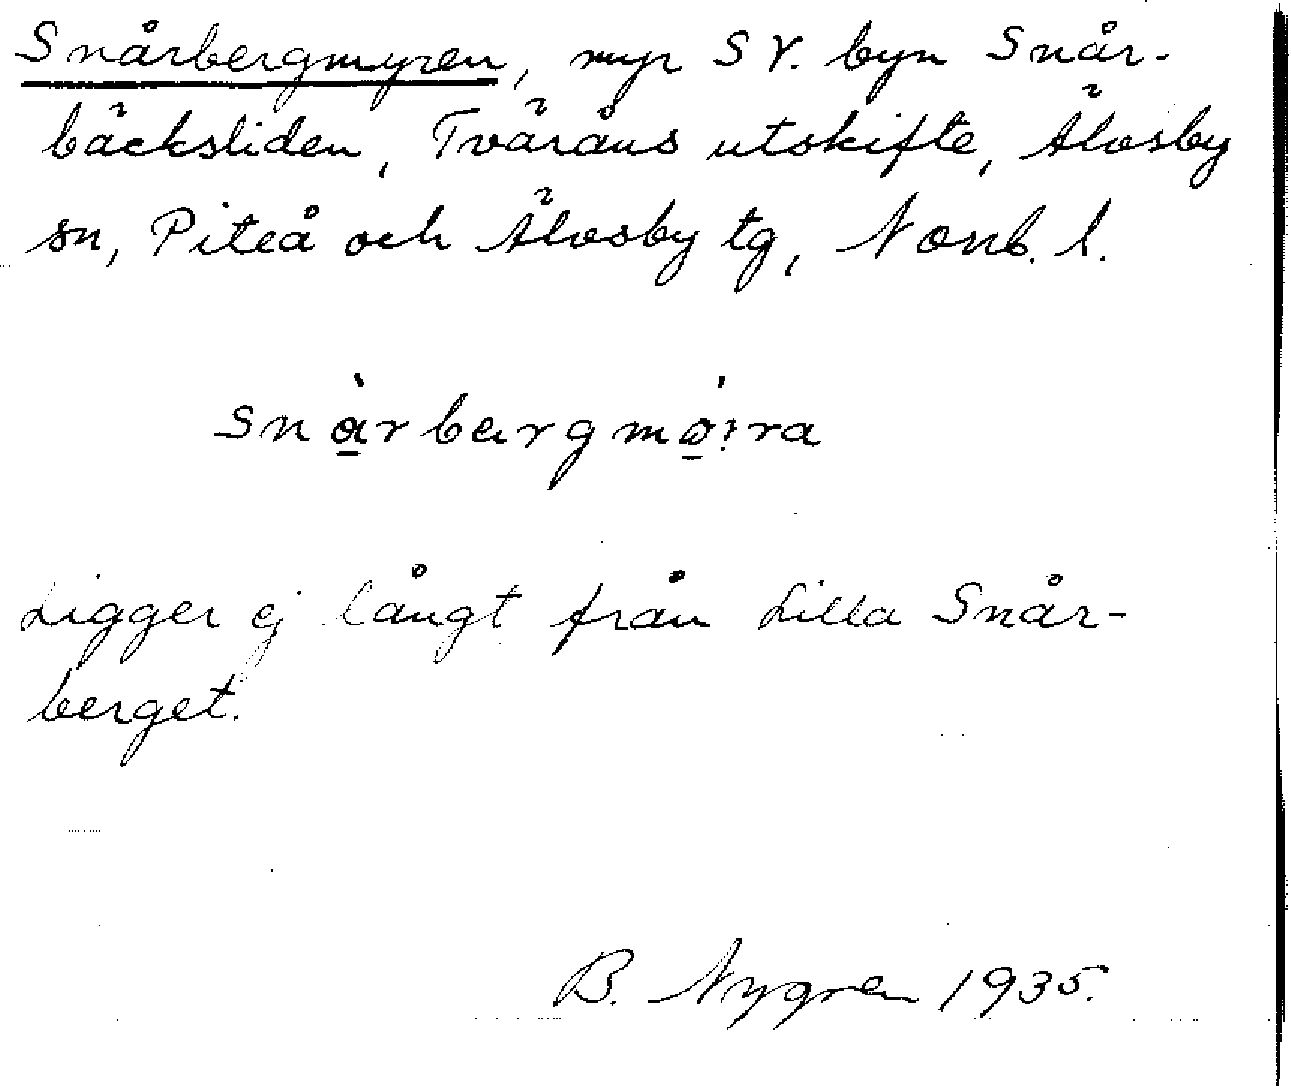 Snårbergmyren, myr SV. byn Snår-
bäcksliden, Tväråns utskifte, Älvsby
sn, Piteå och Älvsby tg, Norrb. l.
snàrbergmø̀ira
Ligger ej långt från Lilla Snår-
berget.
B. Nygren 1935.